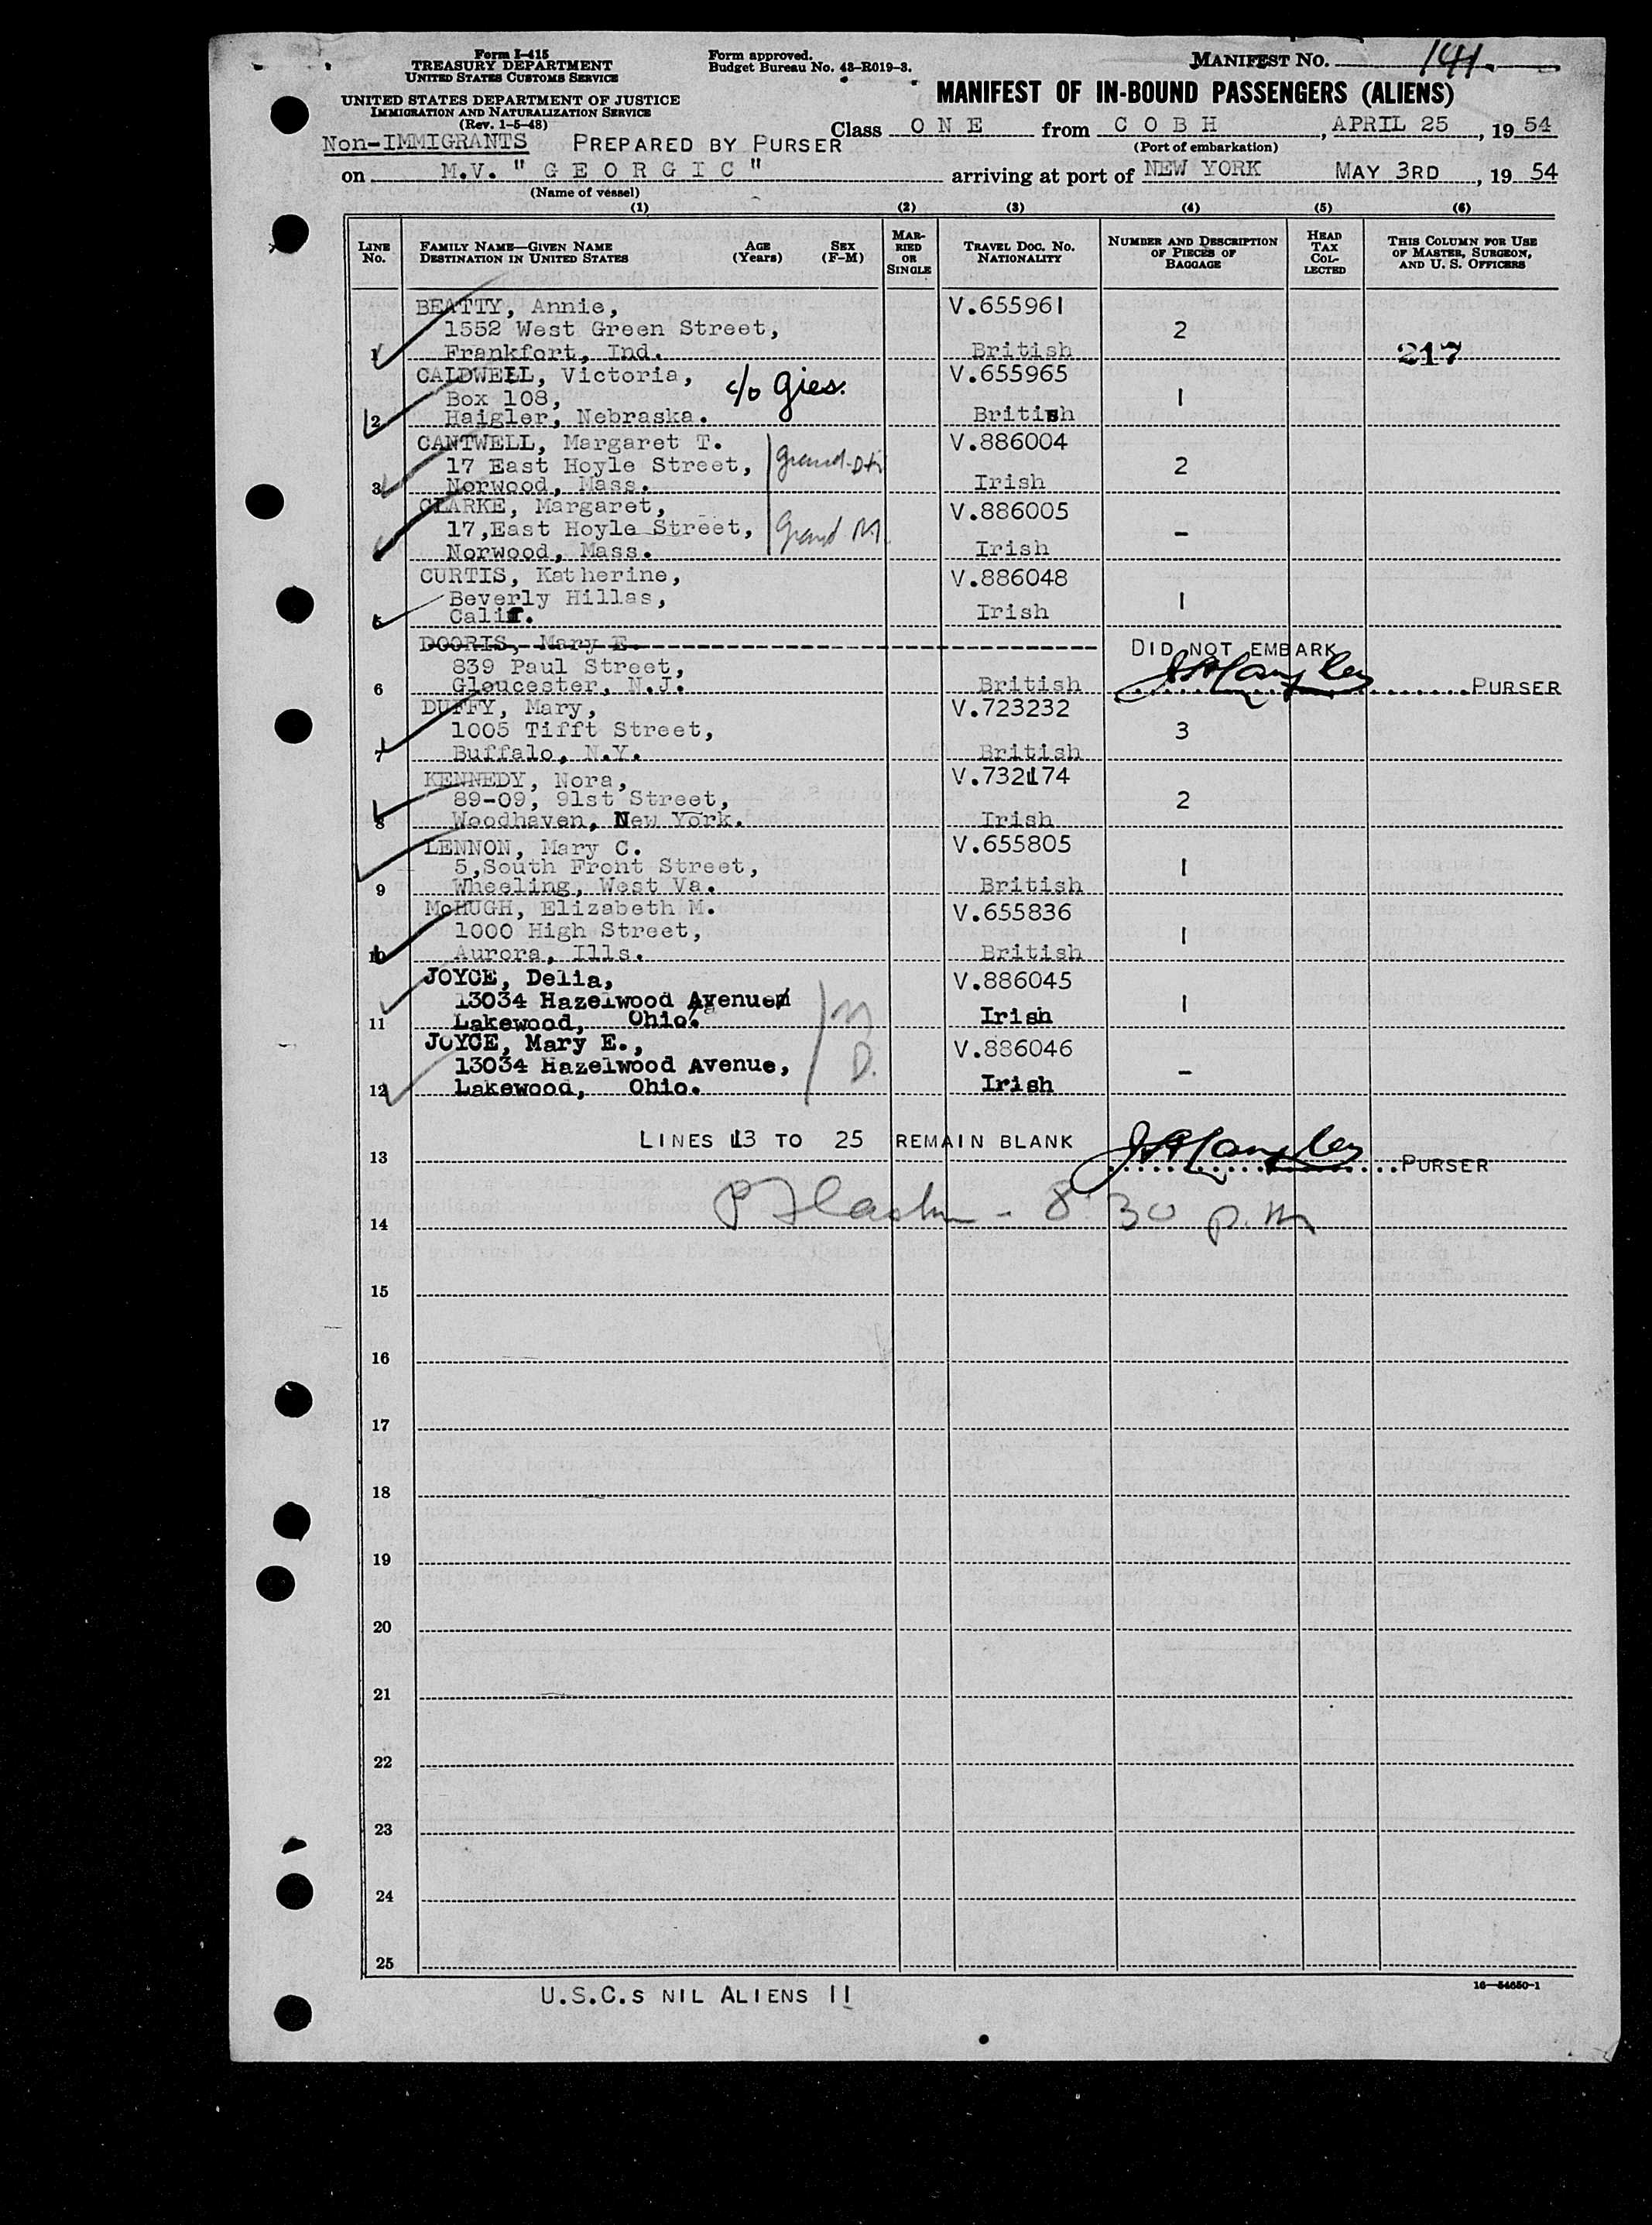 Form I-415
TREASURY DEPARTMENT
UNITED STATES CUSTOMS SERVICE
UNITED STATES DEPARTMENT OF JUSTICE
IMMIGRATION AND NATURALIZATION SERVICE
(Rev. 1-5-48)
Form approved.
Budget Bureau No. 43-R019-3.
MANIFEST NO. 141.
MANIFEST OF IN-BOUND PASSENGERS (ALIENS)
Non-IMMIGRANTS PREPARED BY PURSER Class O N E from C O B H, APRIL 25, 19 54
(Port of embarkation)
on M.V. "G E O R G I C" arriving at port of NEW YORK MAY 3RD, 19 54
(Name of vessel)
(1) (2) (3) (4) (5) (6)
LINE No.
FAMILY NAME—GIVEN NAME
DESTINATION IN UNITED STATES
AGE (Years)
SEX (F-M)
MARRIED OR SINGLE
TRAVEL DOC. NO. NATIONALITY
NUMBER AND DESCRIPTION OF PIECES OF BAGGAGE
HEAD TAX COLLECTED
THIS COLUMN FOR USE OF MASTER, SURGEON, AND U. S. OFFICERS
BEATTY, Annie, V.655961
1552 West Green Street, 2
1 Frankfort, Ind. British 217
CALDWELL, Victoria, c/o Gies. V.655965
Box 108, 1
2 Haigler, Nebraska. British
CANTWELL, Margaret T. V.886004
17 East Hoyle Street, 2
3 Norwood, Mass. Irish
CLARKE, Margaret, V.886005
17,East Hoyle Street, Grand M. -
Norwood, Mass. Irish
CURTIS, Katherine, V.886048
Beverly Hillas, 1
5 Calif. Irish
DOORIS, Mary E. DID NOT EMBARK
839 Paul Street,
6 Gloucester, N.J. British PURSER
DUFFY, Mary, V.723232
1005 Tifft Street, 3
7 Buffalo, N.Y. British
KENNEDY, Nora, V.732174
89-09, 91st Street, 2
8 Woodhaven, New York. Irish
LENNON, Mary C. V.655805
5,South Front Street, 1
9 Wheeling, West Va. British
McHUGH, Elizabeth M. V.655836
1000 High Street, 1
10 Aurora, Ills. British
JOYCE, Delia, V.886045
13034 Hazelwood Avenue M 1
11 Lakewood, Ohio. Irish
JOYCE, Mary E., V.886046
13034 Hazelwood Avenue, D. -
12 Lakewood, Ohio. Irish
LINES 13 TO 25 REMAIN BLANK
13 PURSER
14 8:30 p.m
15
16
17
18
19
20
21
22
23
24
25
16—54650-1
U.S.C.s NIL ALIENS 11